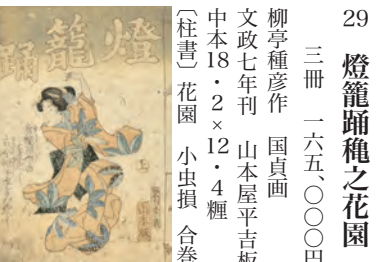 29 燈籠踊穐之花園
三冊 一六五、〇〇〇円
柳亭種彦作 国貞画
文政七年刊 山本屋平吉板
中本18・2×12・4糎
〔柱書〕花園 小虫損 合巻
燈籠踊
上